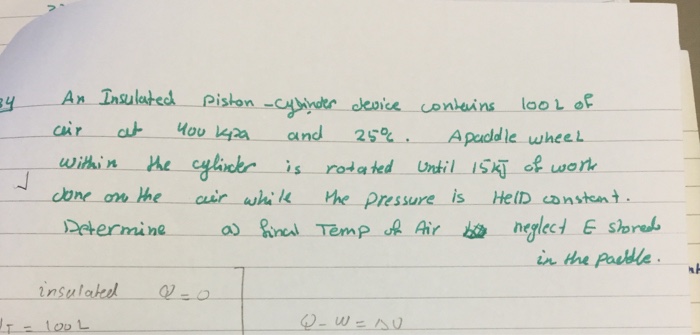 34 An Insulated piston-cylinder device contains 100 L of
air at 400 kpa and 25°c. A paddle wheel
within the cylinder is rotated until 15 kJ of work
done on the air while the pressure is HelD constant.
Determine a) final Temp of Air neglect E stored
in the paddle.
insulated Q = 0
= 100 L Q - W = ΔU